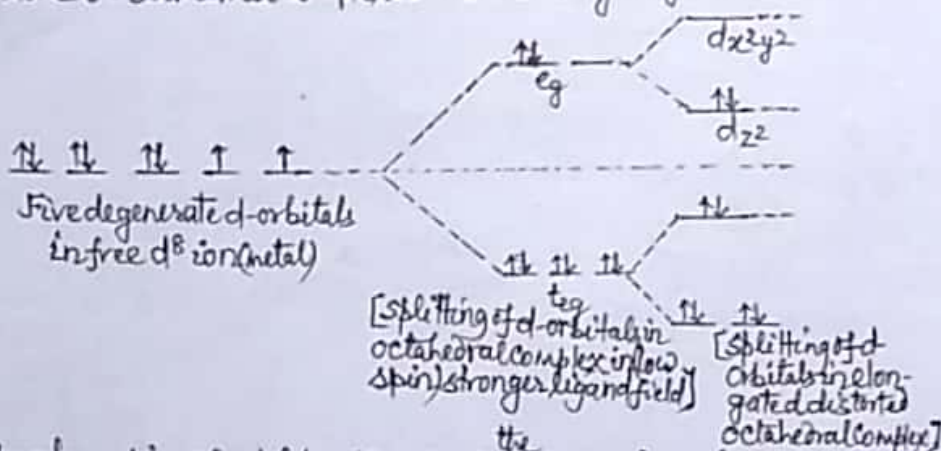 dx²y²
eg
dz²
Five degenerate d-orbitals
in free d⁸ ion (metal)
teg
[splitting of d-orbitals in
octahedral complex in (low
spin) stronger ligand field]
[splitting of d
orbitals in elon-
gated distorted
octahedral complex]
the